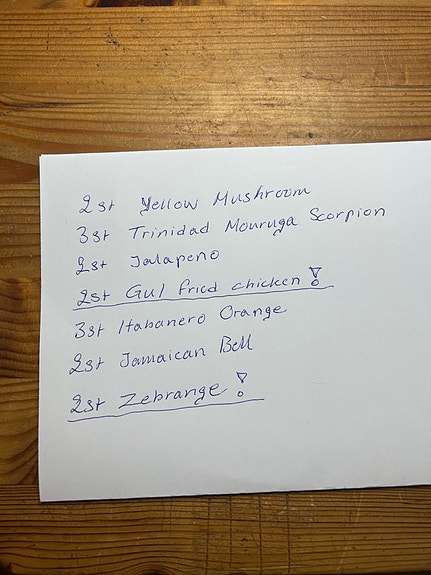 2st Yellow Mushroom
3st Trinidad Mouruga Scorpion
2st Jalapeno
2st Gul fried chicken!
3st Habanero Orange
2st Jamaican Bell
2st Zebrange!